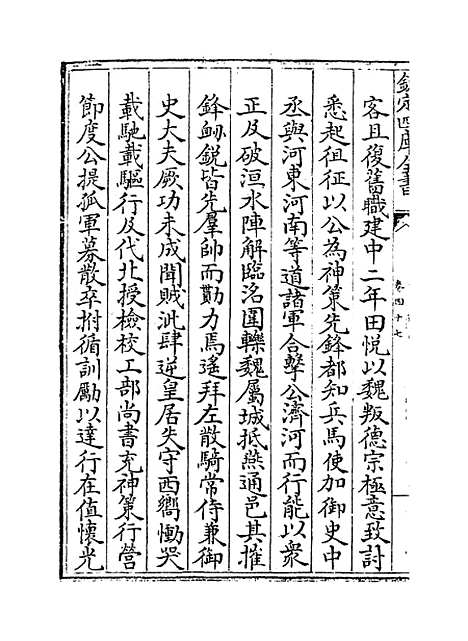 欽定四庫全書
卷四十七
客且復舊職建中二年田悅以魏叛德宗極意致討
悉起徂征以公為神策先鋒都知兵馬使加御史中
丞與河東河南等道諸軍合擊公濟河而行能以衆
正及破洹水陣解臨洺圍轢魏屬城抵燕通邑其摧
鋒剉銳皆先羣帥而勠力焉遙拜左散騎常侍兼御
史大夫厥功未成聞賊泚肆逆皇居失守西嚮慟哭
載馳載驅行及代北授檢校工部尚書充神策行營
節度公提孤軍募散卒拊循訓勵以達行在值懷光